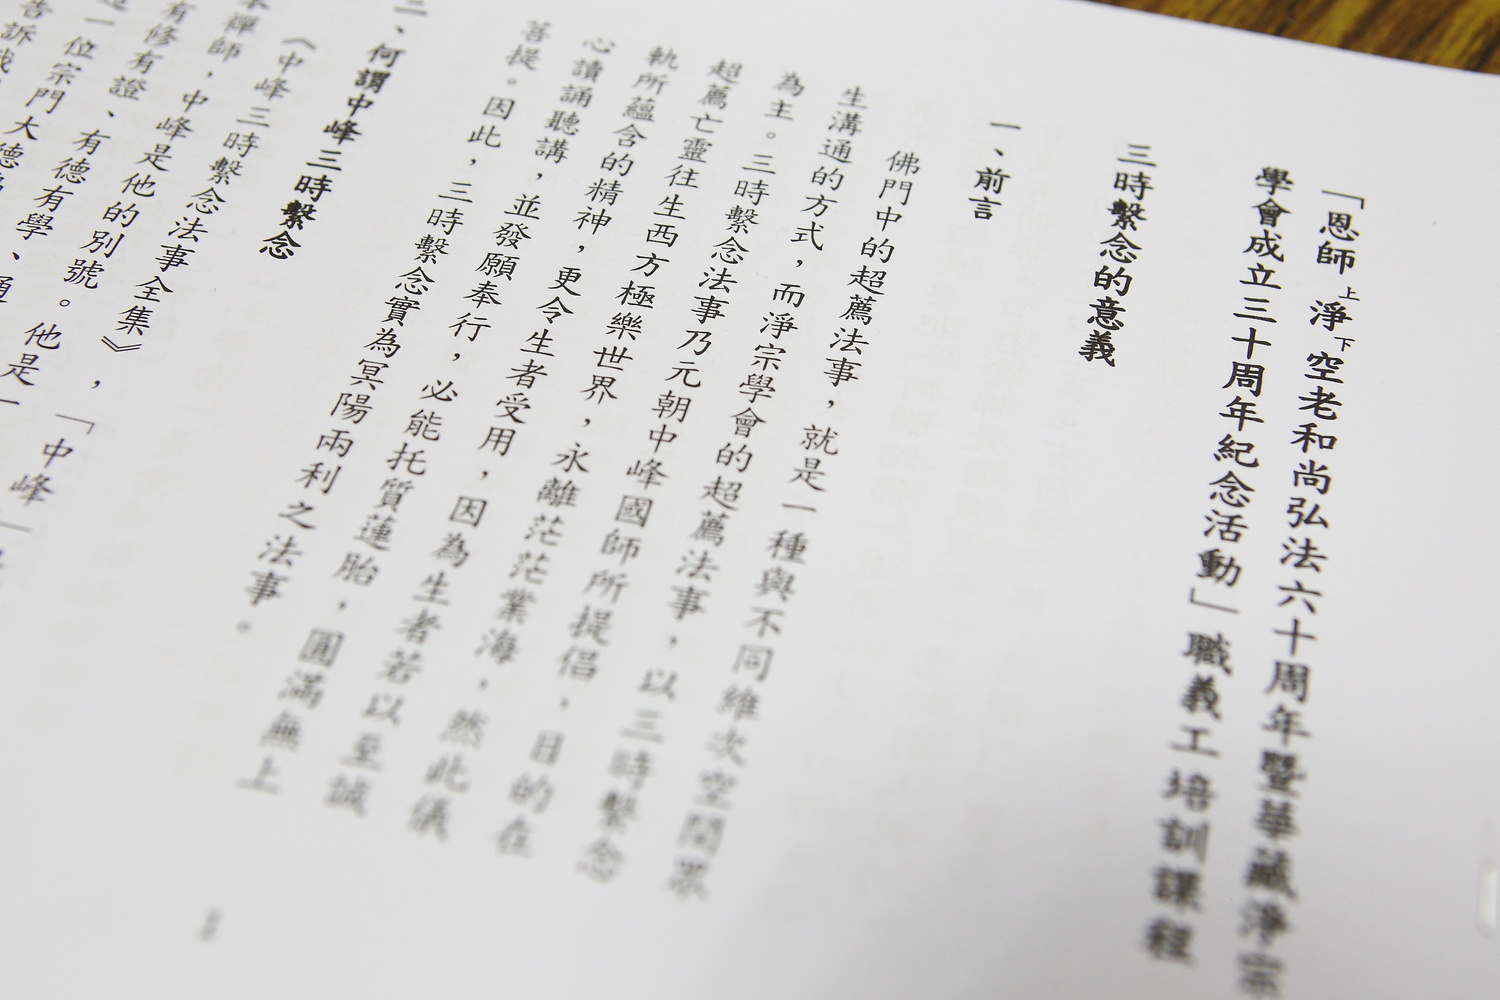 「恩師上淨下空老和尚弘法六十周年暨華藏淨宗
學會成立三十周年紀念活動」職義工培訓課程
三時繫念的意義
一、前言
佛門中的超薦法事，就是一種與不同維次空間眾
生溝通的方式，而淨宗學會的超薦法事，以三時繫念
為主。三時繫念法事乃元朝中峰國師所提倡，目的在
超薦亡靈往生西方極樂世界，永離茫茫業海，然此儀
軌所蘊含的精神，更令生者受用，因為生者若以至誠
心讀誦聽講，並發願奉行，必能托質蓮胎，圓滿無上
菩提。因此，三時繫念實為冥陽兩利之法事。
二、何謂中峰三時繫念
《中峰三時繫念法事全集》，「中峰
本禪師，中峰是他的別號。他是一
有修有證、有德有學、通
一位宗門大德
告訴我